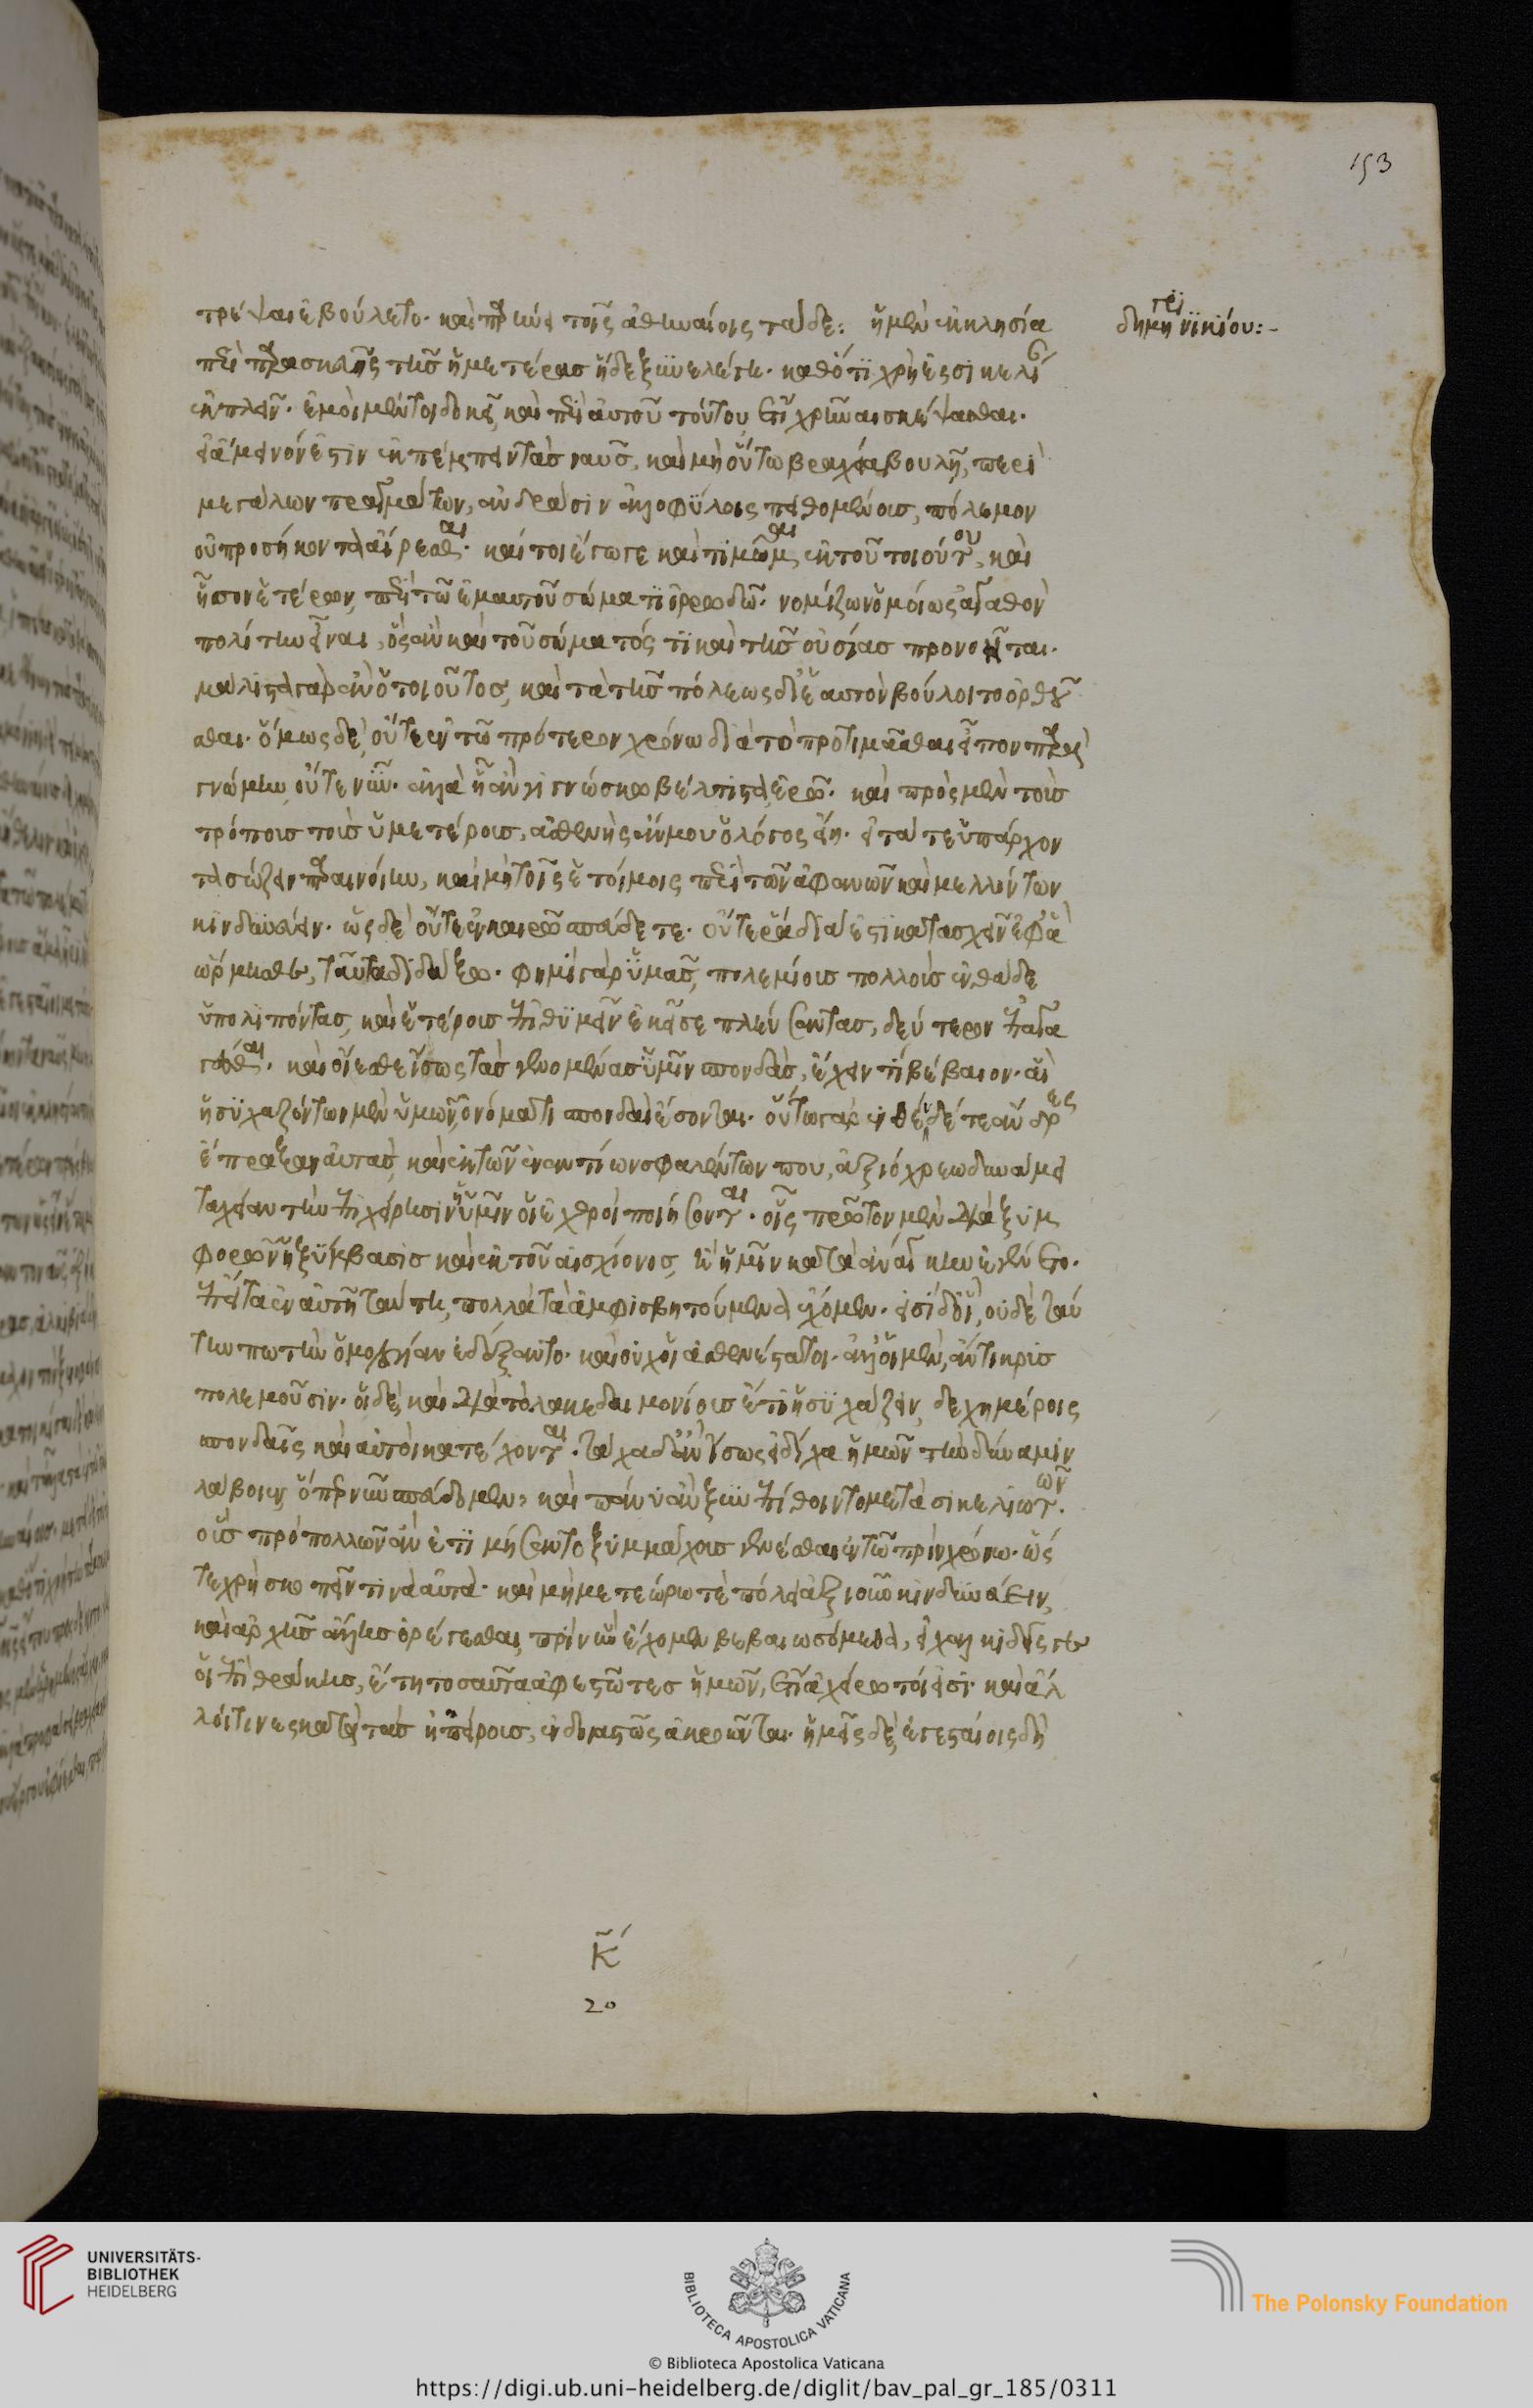 τρέψαι ἐβούλετο. καὶ παρήνει τοῖς ἀθηναίοις τάδε: ἡ μὲν ἐκκλησία
δημηγρί νικίου:-
περὶ παρασκευῆς τῆς ἡμετέρας ἥδε ξυνελέγη. καθότι χρὴ ἐς σικελί
ἐκπλεῖν. ἐμοὶ μέντοι δοκεῖ, καὶ περὶ αὐτοῦ τούτου ἔτι χρῆναι σκέψασθαι.
εἰ ἄμεινόν ἐστιν ἐκπέμπειν τὰς ναῦς, καὶ μὴ οὕτω βραχεία βουλῆ, περὶ
μεγάλων πραγμάτων, ἀνδράσιν ἀλλοφύλοις πειθομένοις, πόλεμον
οὐ προσήκοντα αἴρεσθαι. καίτοι ἔγωγε καὶ τιμῶμαι ἐκ τοῦ τοιούτου, καὶ
ἧσσον ἑτέρων, περὶ τῶ ἐμαυτοῦ σώματι ὀρρωδῶ. νομίζων ὁμοίως ἀγαθὸν
πολίτην εἶναι, ὃς ἂν καὶ τοῦ σώματός τι καὶ τῆς οὐσίας προνοῆται.
μάλιστα γὰρ ἂν ὁ τοιοῦτος, καὶ τὰ τῆς πόλεως δι' ἑαυτὸν βούλοιτο ὀρθοῦ
σθαι. ὅμως δὲ, οὔτε ἐν τῶ πρότερον χρόνω διὰ τὸ προτιμᾶσθαι εἶπον παρὰ
γνώμην, οὔτε νῦν. ἀλλὰ ἧ ἂν γιγνώσκω βέλτιστα, ἐρῶ. καὶ πρὸς μὲν τοὺς
τρόπους τοὺς ὑμετέρους, ἀσθενὴς ἄν μου ὁ λόγος εἴη. εἰ τά τε ὑπάρχον
τα σώζειν παραινοίην, καὶ μὴ τοῖς ἑτοίμοις περὶ τῶν ἀφανῶν καὶ μελλόντων
κινδυνεύειν. ὡς δὲ οὔτε ἐν καιρῶ σπεύδετε. οὔτε ῥάδιά ἐστι κατασχεῖν ἐφ' ἃ
ὥρμησθε, ταῦτα διδάξω. φημὶ γὰρ ὑμᾶς, πολεμίους πολλοὺς ἐνθάδε
ὑπολιπόντας, καὶ ἑτέρους ἐπιθυμεῖν ἐκεῖσε πλεύσαντας, δεύτερον ἐπαγα
γέσθαι. καὶ οἴεσθε ἴσως τὰς γενομένας ὑμῖν σπονδὰς, ἔχειν τι βέβαιον. αἳ
ἡσυχαζόντων μὲν ὑμῶν, ὀνόματι σπονδαὶ ἔσονται. οὕτω γὰρ ἐνθένδέ τε ἄνδρες
ἔπραξαν αὐτὰς, καὶ ἐκ τῶν ἐναντίων σφαλέντων που, ἀξιόχρεω δυνάμει
ταχεῖαν τὴν ἐπιχείρησιν ἡμῖν οἱ ἐχθροὶ ποιήσονται. οἷς πρῶτον μὲν διὰ ξυμ
φορῶν ἡ ξύμβασις καὶ ἐκ τοῦ αἰσχίονος, ἢ ἡμῖν κατὰ ἀνάγκην ἐγένετο.
ἔπειτα ἐν αὐτῆ ταύτη, πολλὰ τὰ ἀμφισβητούμενα ἔχομεν. εἰσὶ δ' οἳ, οὐδὲ ταύ
την πω τὴν ὁμολογίαν ἐδέξαντο. καὶ οὐχ οἱ ἀσθενέστατοι. ἀλλ' οἱ μὲν, ἄντικρυς
πολεμοῦσιν. οἱ δὲ, καὶ διὰ τὸ λακεδαιμονίους ἔτι ἡσυχάζειν, δεχημέροις
σπονδαῖς καὶ αὐτοὶ κατέχονται. τάχα δ' ἂν ἴσως εἰ δίχα ἡμῶν τὴν δύναμιν
λάβοιεν, ὅπερ νῦν σπεύδομεν, καὶ πάνυ ἂν ξυνεπίθοιντο μετὰ σικελιωτῶν.
οὓς πρὸ πολλῶν ἂν ἐτιμήσαντο ξυμμάχους γενέσθαι ἐν τῶ πρὶν χρόνω. ὥς
τε χρὴ σκοπεῖν τινὰ αὐτά. καὶ μὴ μετεώρω τε πόλει ἀξιοῦν κινδυνεύειν,
καὶ ἀρχῆς ἄλλης ὀρέγεσθαι, πρὶν ἣν ἔχομεν βεβαιωσόμεθα, εἰ χαλκιδῆς γε
οἱ ἐπὶ θράκης, ἔτη τοσαῦτα ἀφεστῶτες ἡμῶν, ἔτι ἀχείρωτοί εἰσι. καὶ ἄλ
λοι τινες κατὰ τὰς ἠπείρους, ἐνδοιαστῶς ἀκροῶνται. ἡμεῖς δὲ, ἐγεσταίοις δὴ
κ̃´
20
153
UNIVERSITÄTS-
BIBLIOTHEK
HEIDELBERG
BIBLIOTECA APOSTOLICA VATICANA
The Polonsky Foundation
© Biblioteca Apostolica Vaticana
https://digi.ub.uni-heidelberg.de/diglit/bav_pal_gr_185/0311